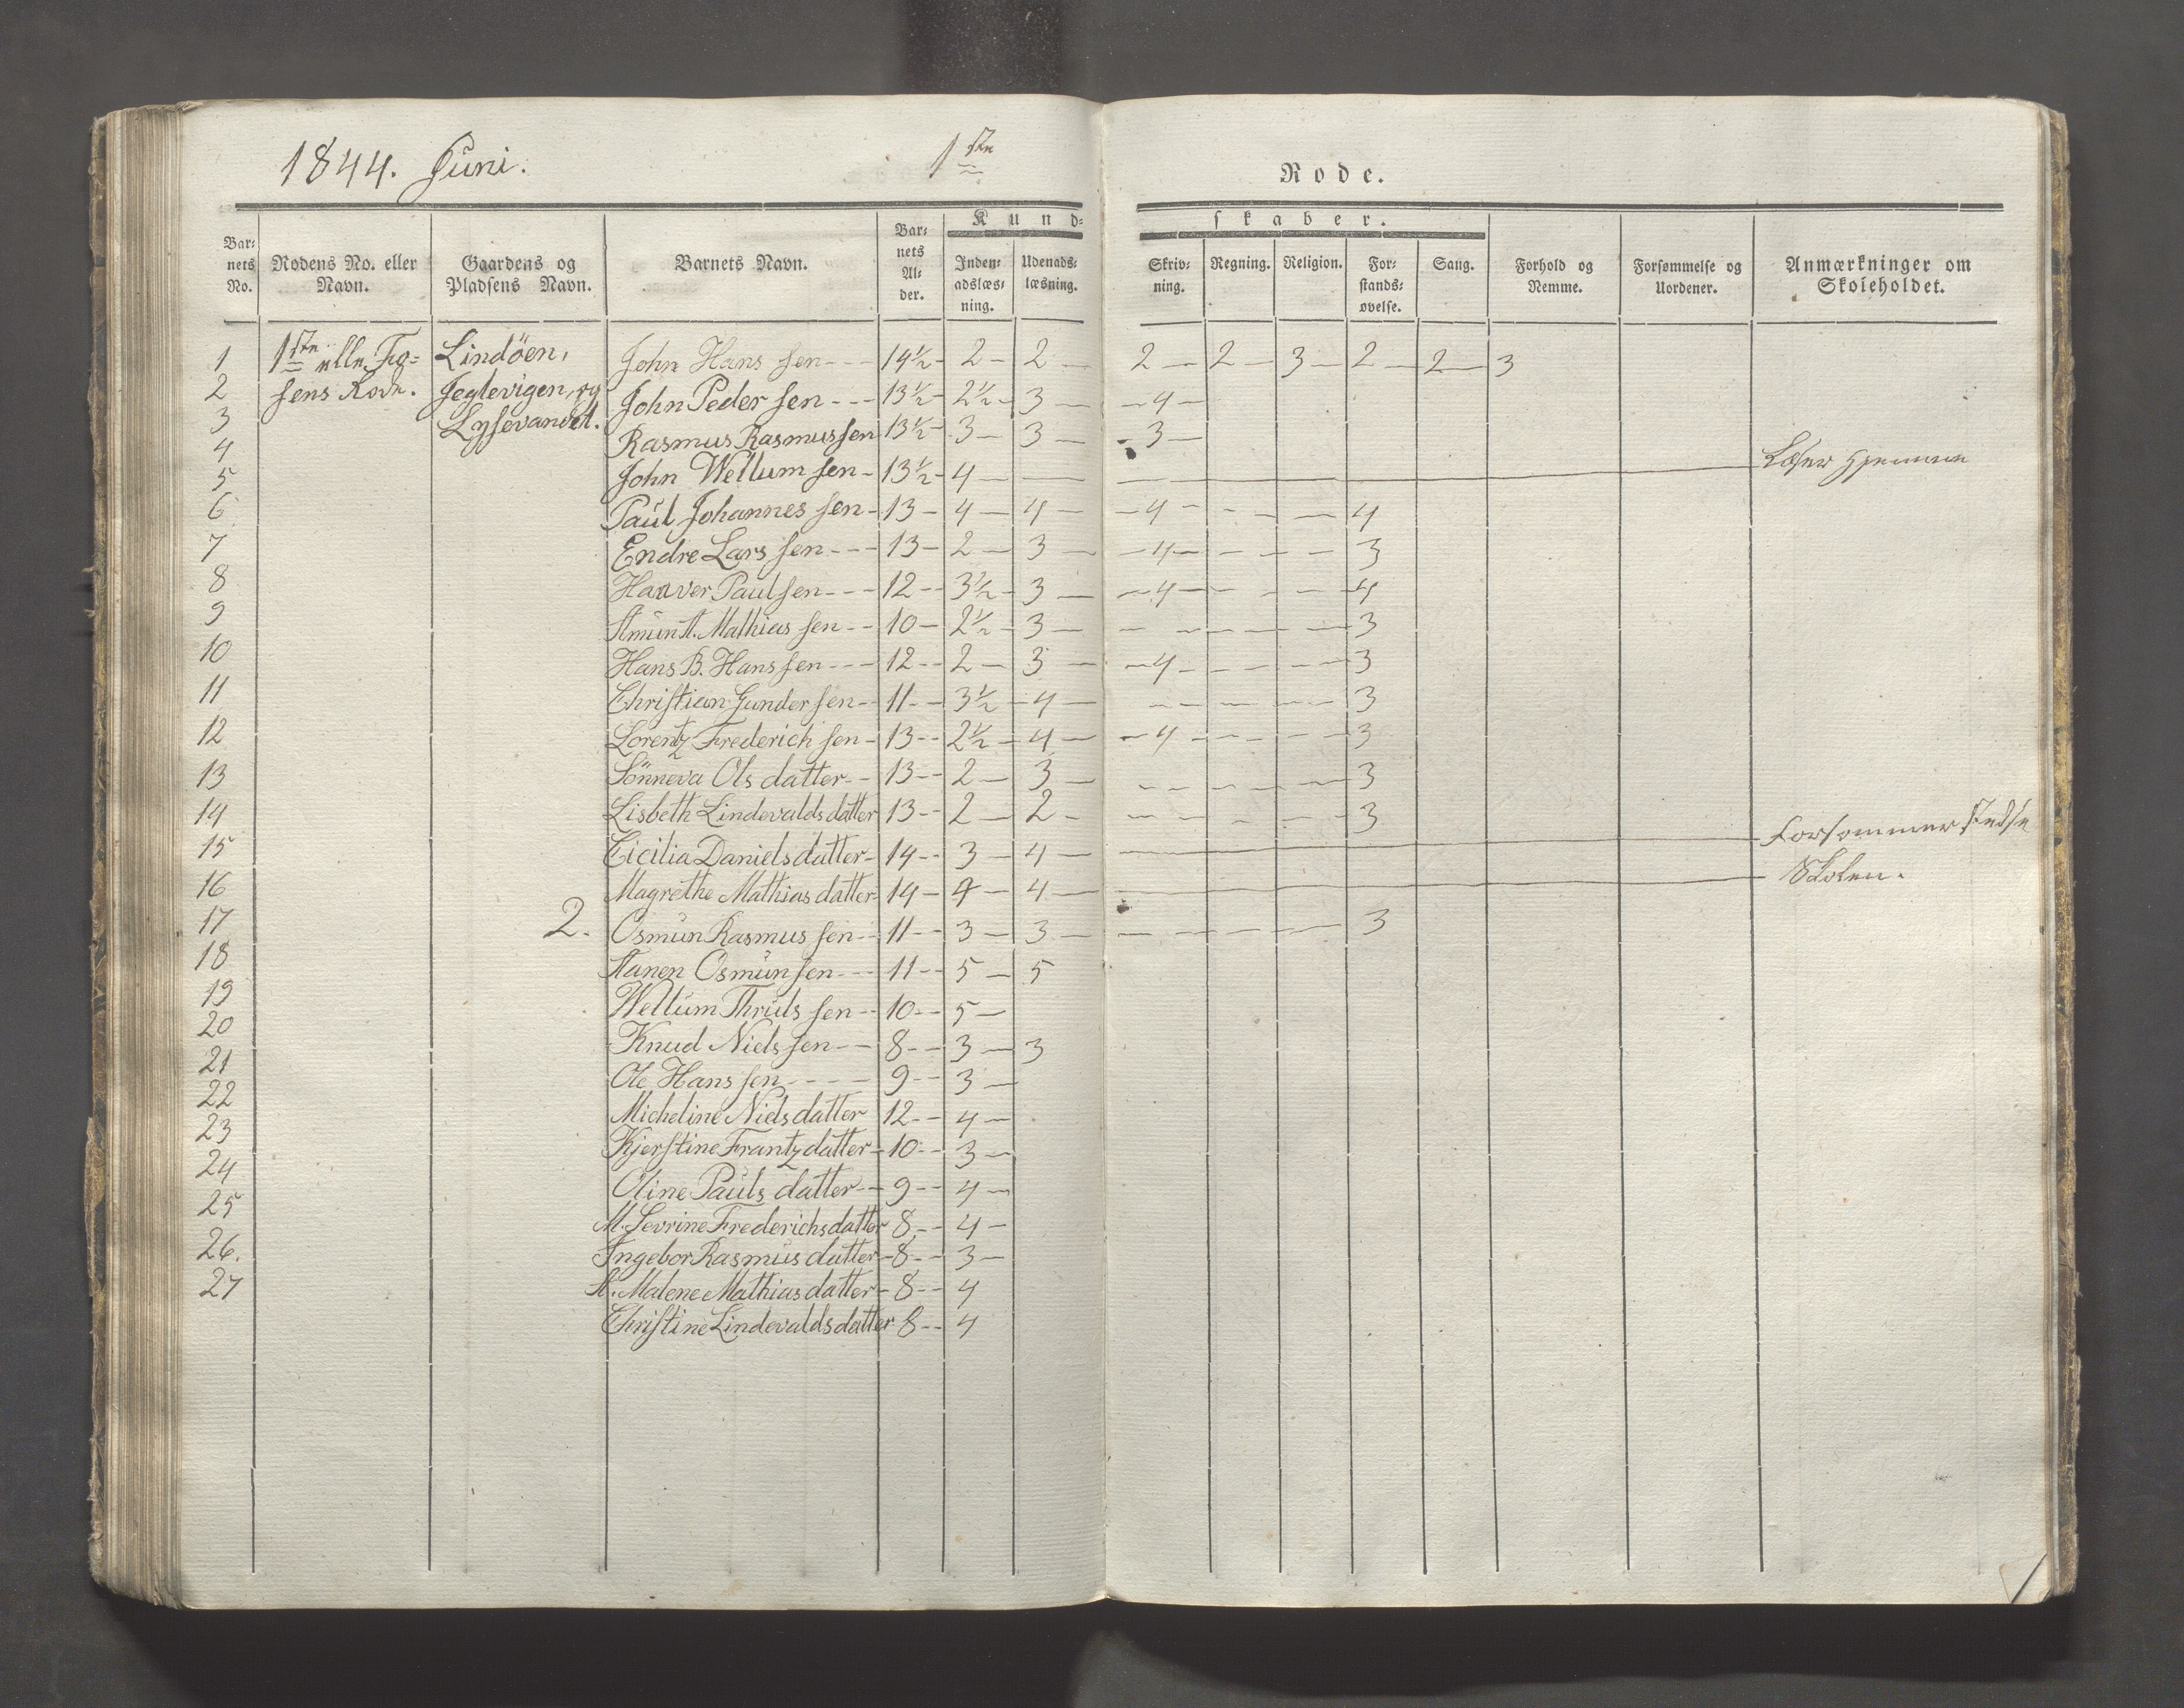 1844. Juni.
1ste
Rode.
Kund-
skaber.
Bar-
nets
No.
Rodens No. eller
Navn.
Gaardens og
Pladsens Navn.
Barnets Navn.
Bar-
nets
Al-
der.
Inden-
adslæs-
ning.
Udenads-
læsning.
Skriv-
ning.
Regning.
Religion.
For-
stands-
øvelse.
Sang.
Forhold og
Nemme.
Forsømmelse og
Uordener.
Anmærkninger om
Skoleholdet.
1ste eller
sens Rode.
Lindöen,
Jeglevigen, og
Lysevandet.
1 John Hans sen --- 14½ - 2 - 2 - 2 - 2 - 3 - 2 - 2 - 3
2 John Peder sen --- 13½ - 2½ - 3 - - 4 -
3 Rasmus Rasmussen 13½ - 3 - 3 - - 3 -
4 John Wellum sen - 13½ - 4 - Læser hjemme
5 Paul Johannes sen - 13 - 4 - 4 - - 4 - - - - 4
6 Endre Lars sen --- 13 - 2 - 3 - - 4 - - - - 3
7 Haaver Paulsen --- 12 -- 3½ - 3 - - 4 - - - - 4
8 Amun A. Mathias sen -- 10 - 2½ - 3 - - - - - - 3
9 Hans B. Hanssen --- 12 -- 2 - 3 - - 4 - - - - 3
10 Christian Gunder sen -- 11 -- 3½ - 4 - - - - - - 3
11 Lorentz Frederich sen - 13 -- 2½ - 4 - - 4 - - - - 3
12 Sönneva Ols datter -- 13 -- 2 - 3 - - - - - - 3
13 Lisbeth Lindevalds datter 13 -- 2 - 2 - - - - - - 3
14 Cicilia Daniels datter - 14 -- 3 - 4 - Forsömmer stedse
15 Magrethe Mathias datter - 14 - 4 - 4 - Skolen.
2.
16 Osmun Rasmus sen -- 11 -- 3 - 3 - - - - - 3
17 Aanen Osmunsen --- 11 -- 5 - 5
18 Wellum Thruls sen -- 10 -- 5 -
19 Knud Niels sen -- 8 -- 3 - 3
20 Ole Hans sen ---- 9 -- 3 -
21 Micheline Niels datter 12 - 4 -
22 Kjerstine Frantz datter - 10 -- 3 -
23 Oline Pauls datter -- 9 -- 4 -
24 M. Sevrine Frederichs datter 8 -- 4 -
25 Ingebor Rasmus datter - 8 -- 3 -
26. A. Malene Mathias datter - 8 -- 4
27 Christine Lindevalds datter 8 -- 4